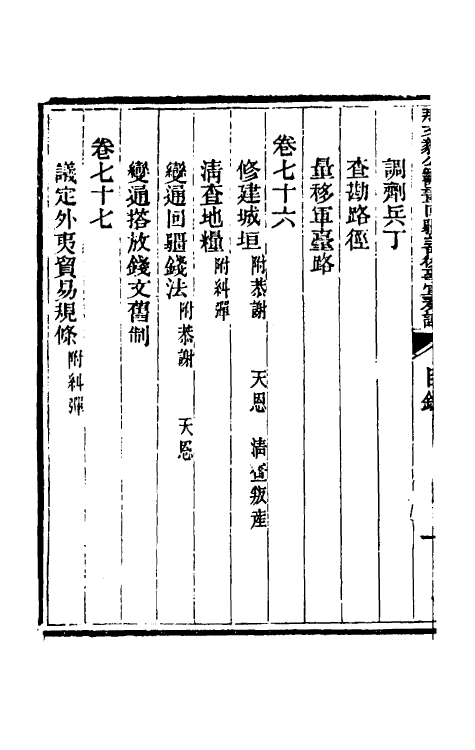 調劑兵丁
查勘路徑
量移軍臺路
卷七十六
修建城垣 附恭謝　天恩　清查叛産
清查地糧 附糾彈
變通回疆錢法 附恭謝　天恩
變通搭放錢文舊制
卷七十七
議定外夷貿易規條 附糾彈
目錄
一